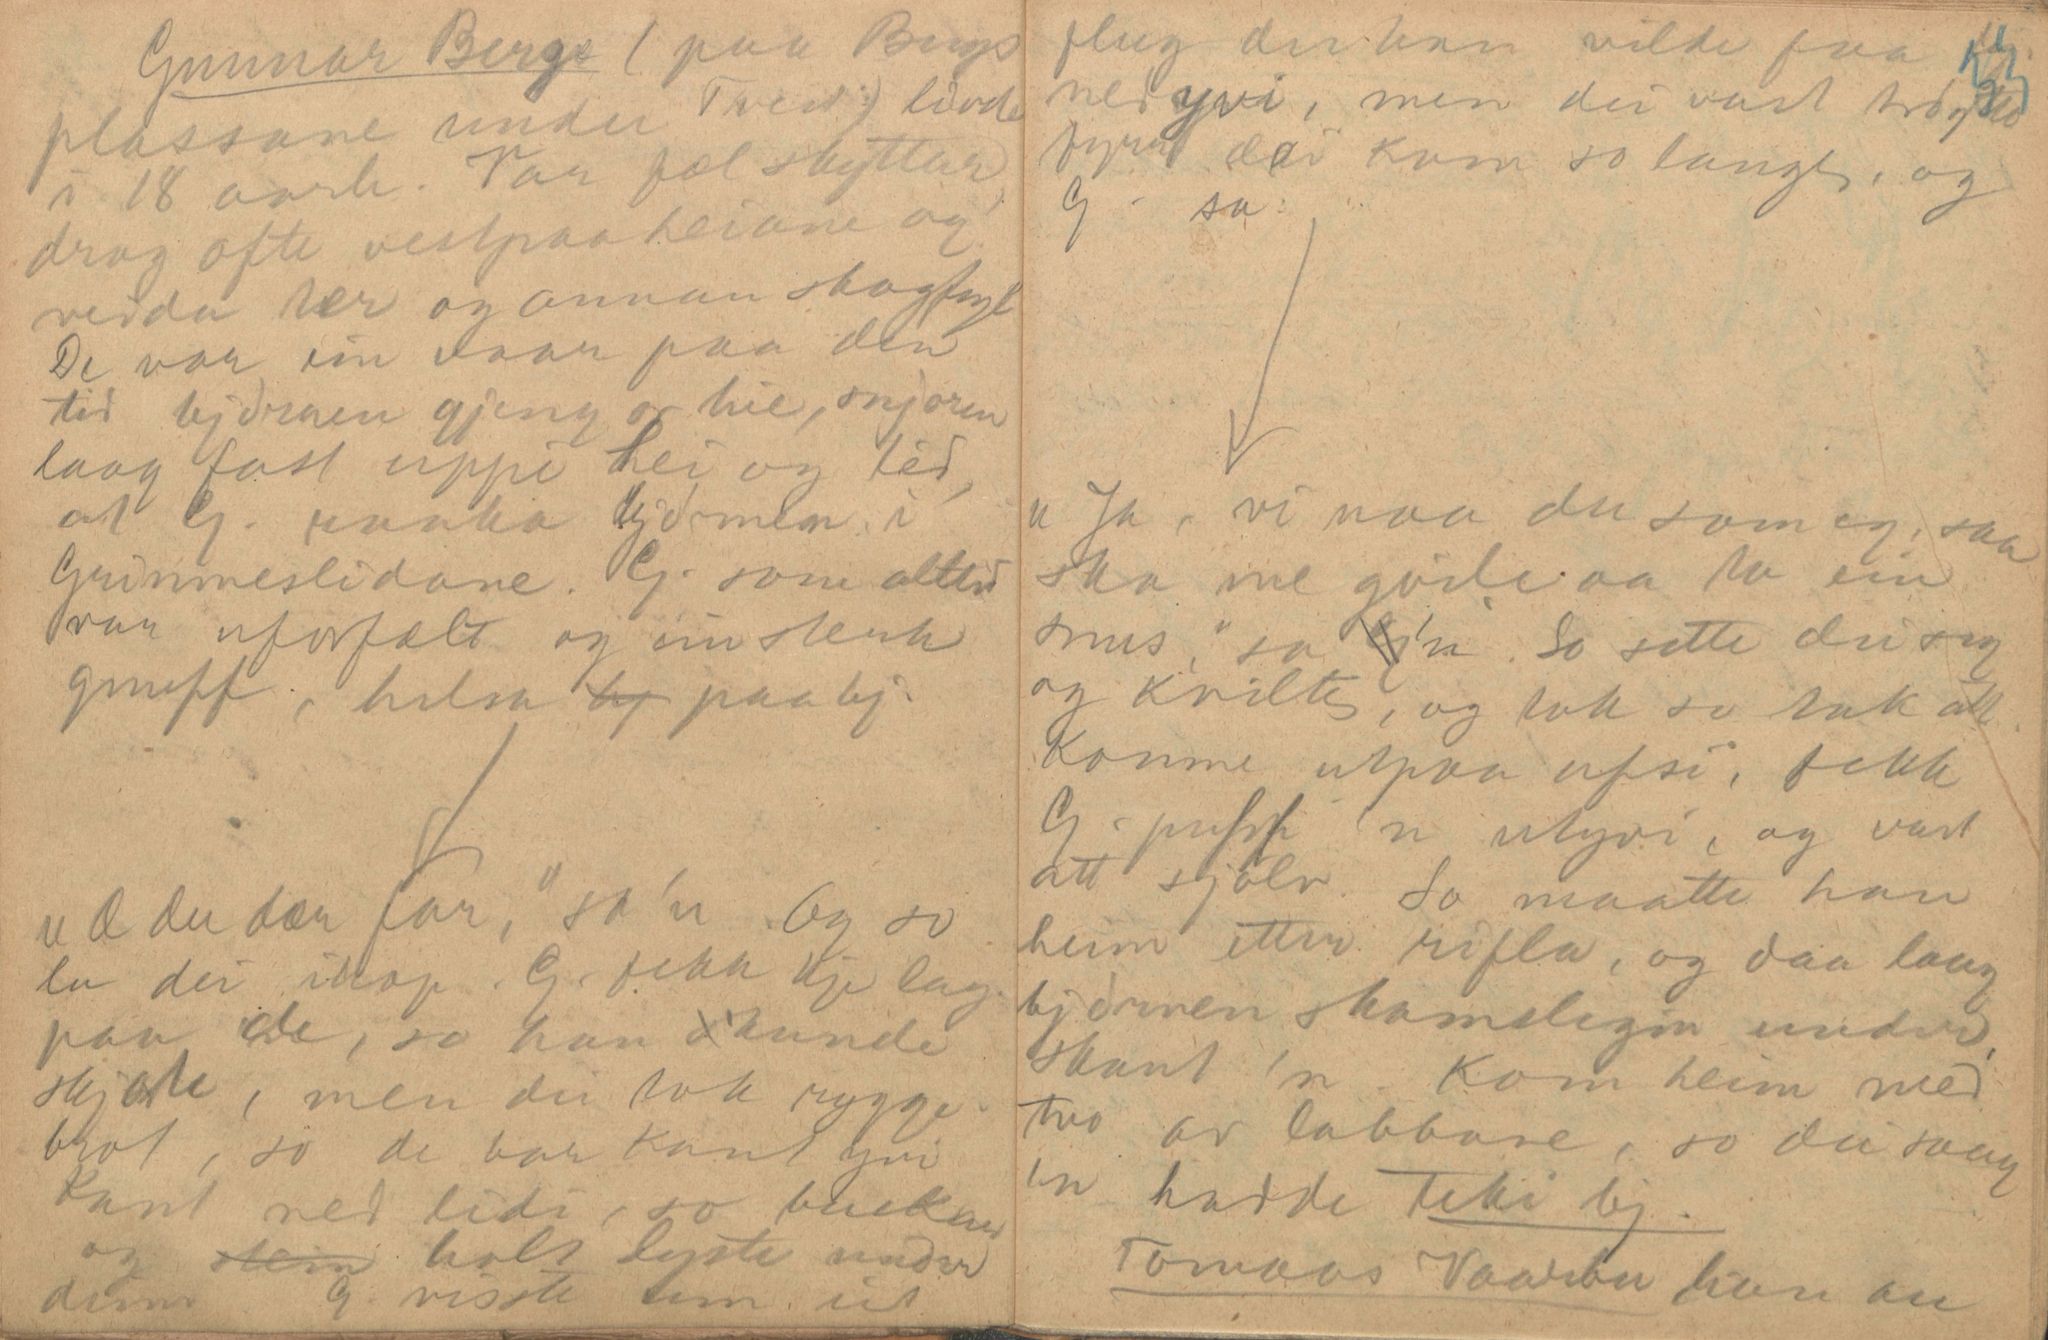 Gunnar Berge (paa Bergs
plassane under Tveit) livde
i 18 aarh. Var fæl skyttar,
drog ofte vestpaa heiane og
veidde tær og annan skogfugl
De var ein vaar paa den
tid bjørnen gjeng or hie, snjoren
laag fast uppi hei og lid,
at G. raaka bjørnen i
Grinneslidane. G. som alltid
var uforfælt og ein sterk
gneff, helsa bj paa bj.
"Æ du dær far," sa'n. Og so
la dei ihop. G. fekk kje lag
paa de, so han kunde
skjote, men dei tok rygge-
brot, so de bar kant yvi
kant ned lidi, so buskar
og stein holt lyste under
deim. G. visste um eit
flug der han vilde faa bj.
nedyvi, men dei vart trøytte
fyrr dei kom so langt, og
G. sa:
"Ja, vi naa du som eg, saa
ska me gviile aa ta ein
snus," sa G 'n. So sette dei seg
og kvilte, og tok so tak att.
Komne utpaa upsi, fekk
G. puff 'n utyvi, og vart
att sjølv. So maatte han
heim etter rifla, og daa laag
bjørnen skamslegin under,
skaut 'n. Kom heim med
two av labbane, so dei saag
'n hadde teki bj.
Tomaas Vaar han au